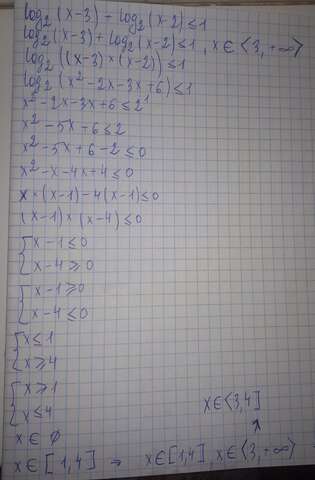 log₂(x-3) - log₂(x-2) ≤ 1
log₂(x-3) + log₂(x-2) ≤ 1, x ∈ ⟨3, +∞⟩
log₂((x-3)×(x-2)) ≤ 1
log₂(x²-2x-3x+6) ≤ 1
x²-2x-3x+6 ≤ 2¹
x²-5x-6 ≤ 2
x²-5x+6-2 ≤ 0
x²-x-4x+4 ≤ 0
x×(x-1)-4(x-1) ≤ 0
(x-1)×(x-4) ≤ 0
{x-1 ≤ 0
x-4 ≥ 0
{x-1 ≥ 0
x-4 ≤ 0
{x ≤ 1
x ≥ 4
{x ≥ 1
x ≤ 4
x ∈ ∅
x ∈ [1,4] → x ∈ [1,4], x ∈ ⟨3, +∞⟩
↑
x ∈ ⟨3,4]